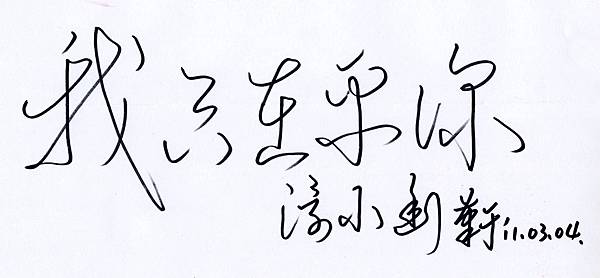 我只在乎你
小 11.03.04.